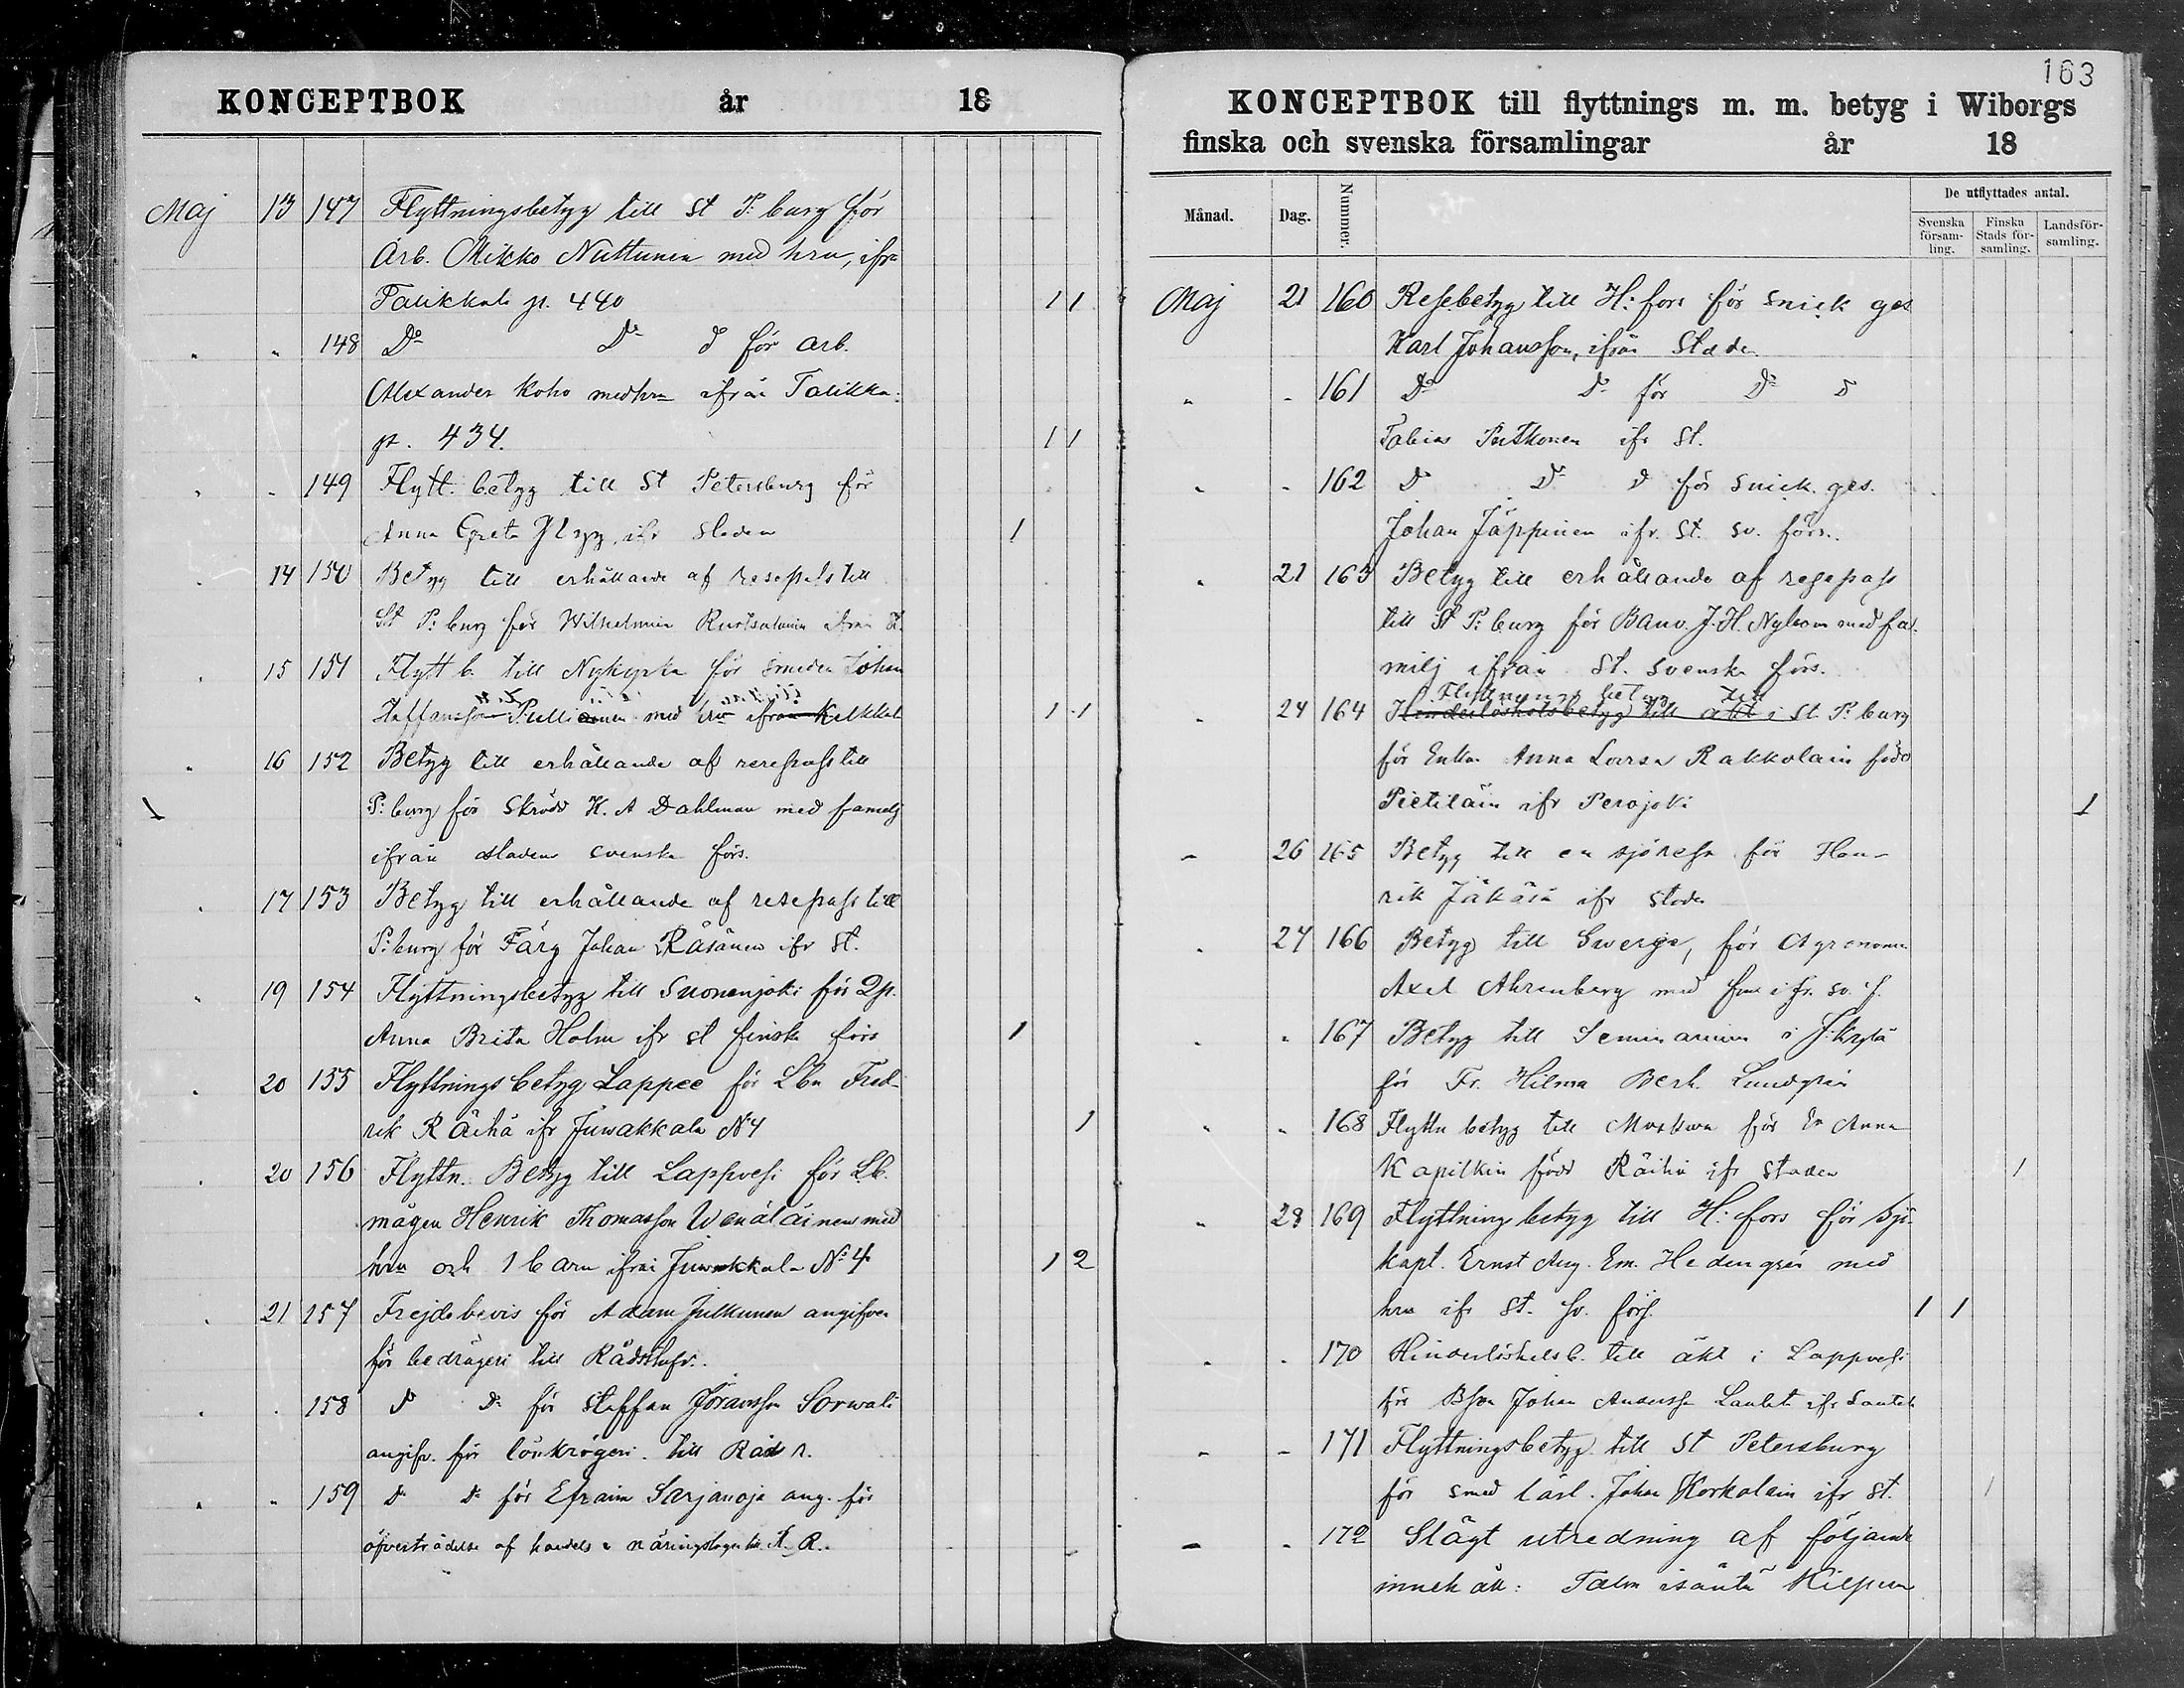 KONCEPTBOK år 18
Maj 13 147 Flyttningsbetyg till St P:burg för
Arb. Mikko Nuttunen med hru, ifr
Talikkala p. 440 1 1
" " 148 Do Do d för arb.
Alexander Koho med hru ifrån Talikka:
p. 434. 1 1
" " 149 Flytt. betyg till St Petersburg för
Anna Greta ifr staden 1
" 14 150 Betyg till erhållande af resepass till
St P:burg för Wilhelmina ifrån St.
" 15 151 Flytt b. till Nykyrka för smeden Johan
Staffansson med hru ifrån 1 1
" 16 152 Betyg till erhållande af resepass till
P:burg för Skrädd K. A Dahlman med familj
ifrån staden svenska förs.
" 17 153 Betyg till erhållande af resepass till
P:burg för Färg Johan Räsänen ifr St.
" 19 154 Flyttningsbetyg till Suonenjoki för Qp.
Anna Brita Holm ifr st finska förs 1
" 20 155 Flyttningsbetyg Lappee för Lbn Fred-
rik Räihä ifr Juwakkala N4 1
" 20 156 Flyttn. Betyg till Lappvesi för Lb.
mågen Henrik Thomasson Wenäläinen med
hru och 1 barn ifrån Juwakkala No 4 1 2
" 21 157 Frejdebevis för Adam Julkunen angifven
för bedrägeri till Rådstufr.
" " 158 D D för Staffan Jöransson Sorwali
angifv. för lönkrögeri. till Råds r.
" " 159 D D för Efraim Sarjanoja ang. för
öfverträdelse af handels o näringslagen till R.
163
KONCEPTBOK till flyttnings m. m. betyg i Wiborgs
finska och svenska församlingar år 18
Månad. Dag. Nummer. De utflyttades antal.
Svenska församling. Finska Stads församling. Landsförsamling.
Maj 21 160 Resebetyg till H:fors för snick ges
Karl Johansson, ifrån Staden
" " 161 Do D för Do D
Tobias Putkonen ifr St.
" " 162 D D d för snick. ges.
Johan Jäppinen ifr. St. sv. förs.
" 21 163 Betyg till erhållande af resepass
till St P:burg för Banv. J. H. Nybom med fa-
milj ifrån St. svenska förs.
Flyttnings betyg till
" 24 164 Hinderlöshetsbetyg till äkt i St. P:burg
för Enkan Anna Lovisa Rakkolain född
Pietiläin ifr Perojoki 1
" 26 165 Betyg till en sjöresa för Hen-
rik Jäkäsä ifr staden
" 27 166 Betyg till Swerge, för Agronomen
Axel Ahrenberg med fru ifr. sv. f.
" " 167 Betyg till Seminarium i J:kylä
för Fr. Hilma Berh. Lundgrén
" " 168 Flyttn betyg till Moskwa för En Anna
Kapitkin född Räihä ifr staden 1
" 28 169 Flyttning betyg till H:fors för Sjö-
kapt. Ernst Aug. Em. Hedengrén med
hru ifr St. sv. förs. 1 1
" " 170 Hinderlöshetsb. till äkt i Lappvesi
för Bson Johan Andersson
" " 171 Flyttningsbetyg till St Petersburg
för smed lärl. Johan Korkolain ifr St. 1
" " 172 Slägt utredning af följande
innehåll: Talon isäntä Kilpisen